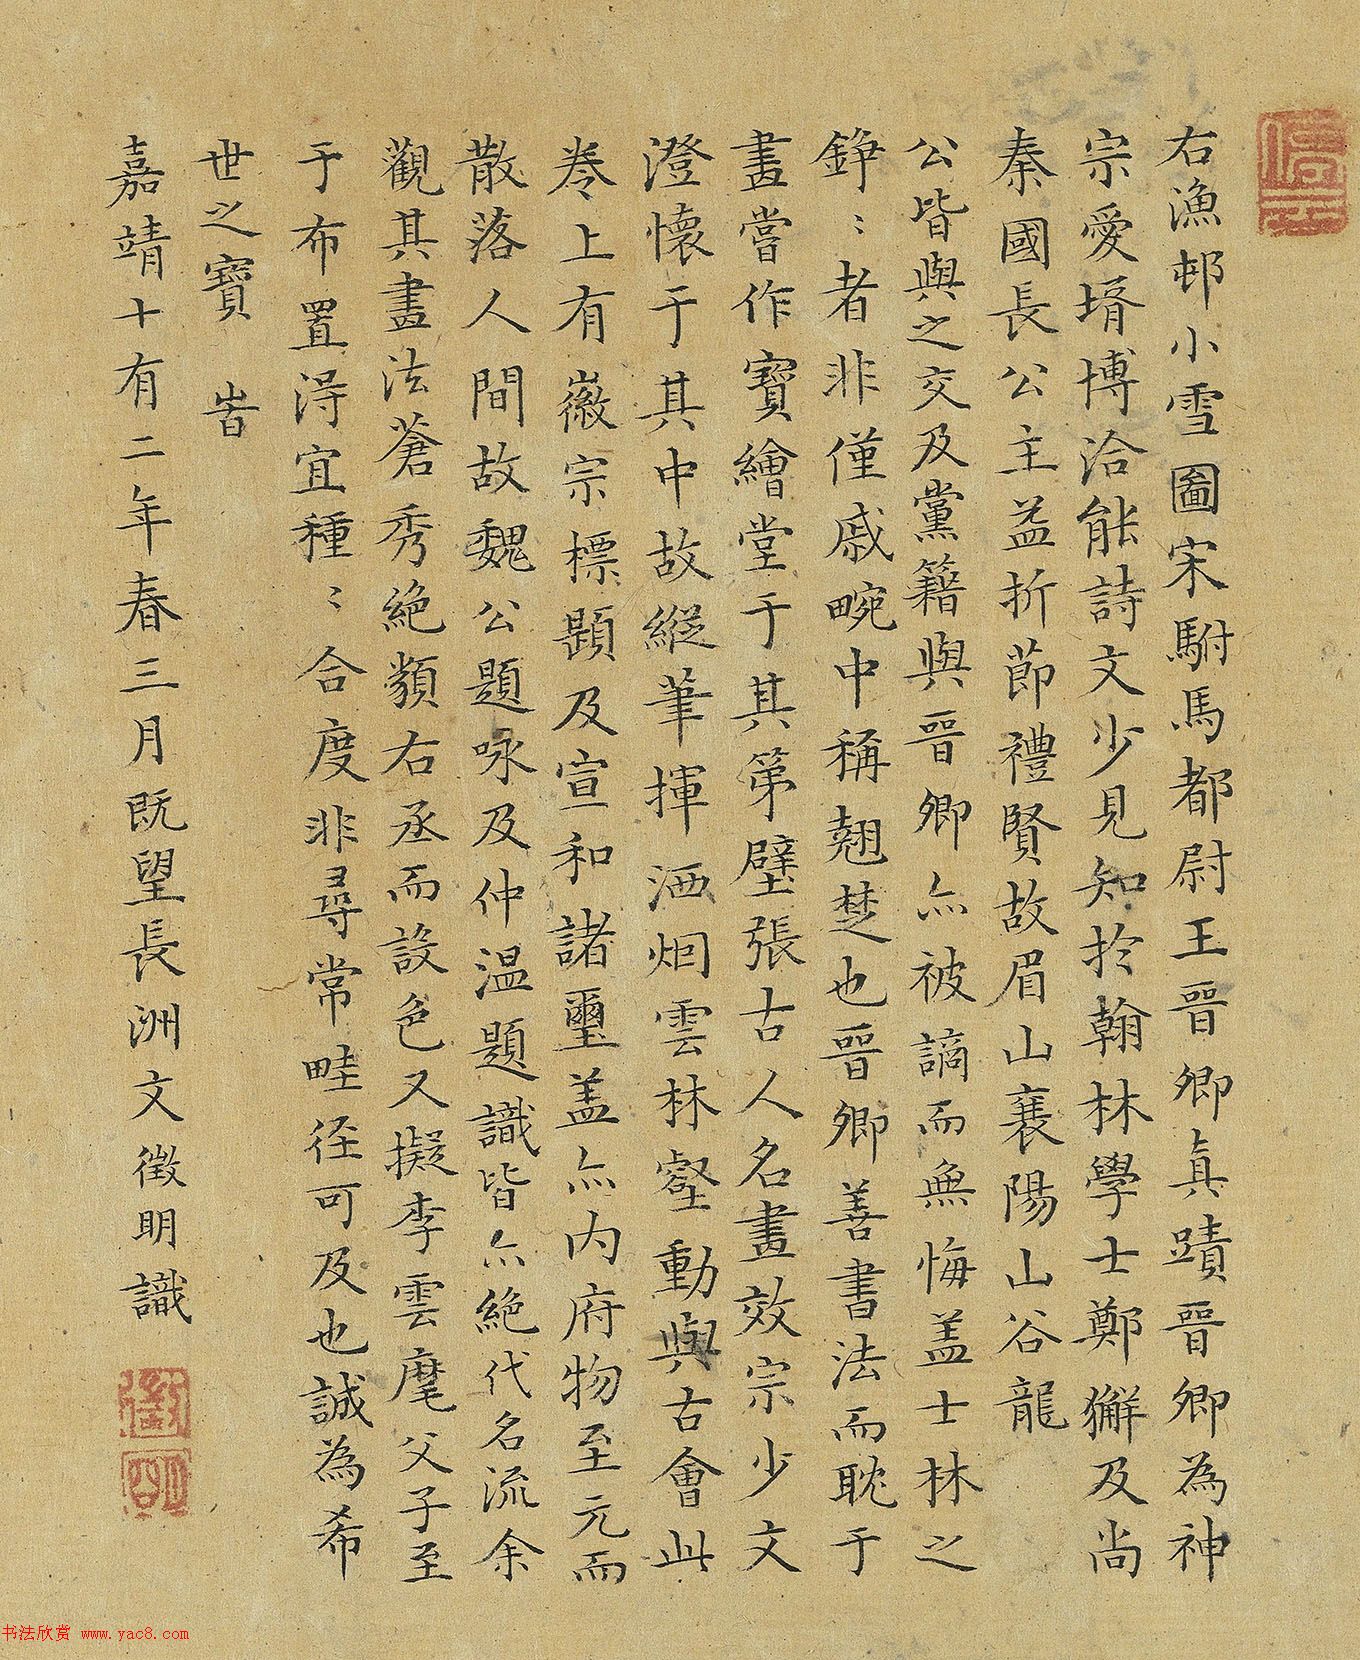 右漁邨小雪圖宋駙馬都尉王晉卿真蹟晉卿為神
宗愛壻博洽能詩文少見知於翰林學士鄭獬及尚
秦國長公主益折節禮賢故眉山襄陽山谷龍
公皆與之交及黨籍與晉卿亦被謫而無悔盖士林之
錚〻者非僅戚畹中稱翹楚也晉卿善書法而耽于
畫嘗作寶繪堂于其第壁張古人名畫效宗少文
澄懷于其中故縱筆揮洒烟雲林壑動與古會此
卷上有徽宗標題及宣和諸璽盖亦内府物至元而
散落人間故魏公題咏及仲温題識皆亦絶代名流余
觀其畫法蒼秀絶類右丞而設色又擬李雲麾父子至
于布置淂宜種〻合度非尋常畦徑可及也誠為希
世之寶 旹
嘉靖十有二年春三月既望長洲文徵明識
停雲
徵明
书法欣赏 www.yac8.com